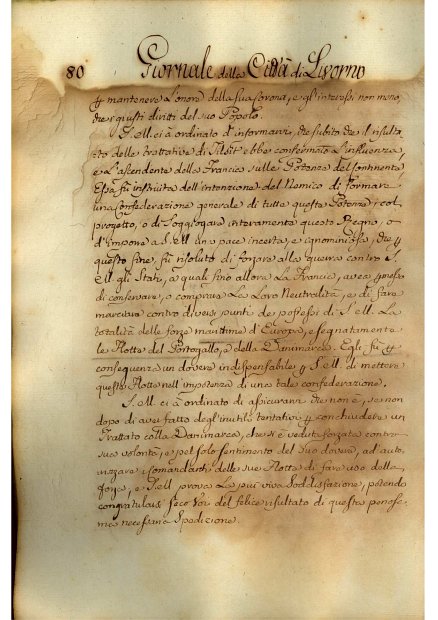 80 Giornale della Città di Livorno
p mantenere l'onore della sua Corona, e gl'interessi non meno
che i giusti diritti del suo Popolo.
S. M. ci à ordinato d'informarvi, che subito che il risulta
to delle trattative di Tilsit ebbe confermato L'influenza,
e L'ascendente della Francia sulle Potenze del Continente
Essa fù instruita dell'intenzione del Nemico di formare
una Confederazione generale di tutte queste Potenze, col
progetto, o di Soggiogare interamente questo Regno, o
d'imporre a S. M. un pace incerta, e ignominiosa, che p
questo fine, fù risoluto di forzare alla guerra contro S.
M. gli Stati, a quali fino allora La Francia, avea permesso
di conservare, o comprare La Loro Neutralità, e di fare
marciare contro diversi punti de possessi di S. M. La
totalità delle forze maritime d'Europa, e segnatamente
le Flotte del Portogallo, e della Danimarca. Egli fù p
conseguenza un dovere indispensabile p S. M. di mettere
queste Flotte nell'impotenza di una tale confederazione.
S. M. ci à ordinato di assicurarvi che non è, se non
dopo di aver fatto degl'inutili tentativi p conchiudere un
Trattato colla Danimarca, che si è veduta forzata contro
sua volontà, e pel solo sentimento del suo dovere, ad auto
rizzare i Comandanti delle sue Flotta di fare uso della
forza, e S. M. prova La più viva Soddisfazione, potendo
congratularsi seco Voi del felice risultato di questa penosa
ma necessaria Spedizione.